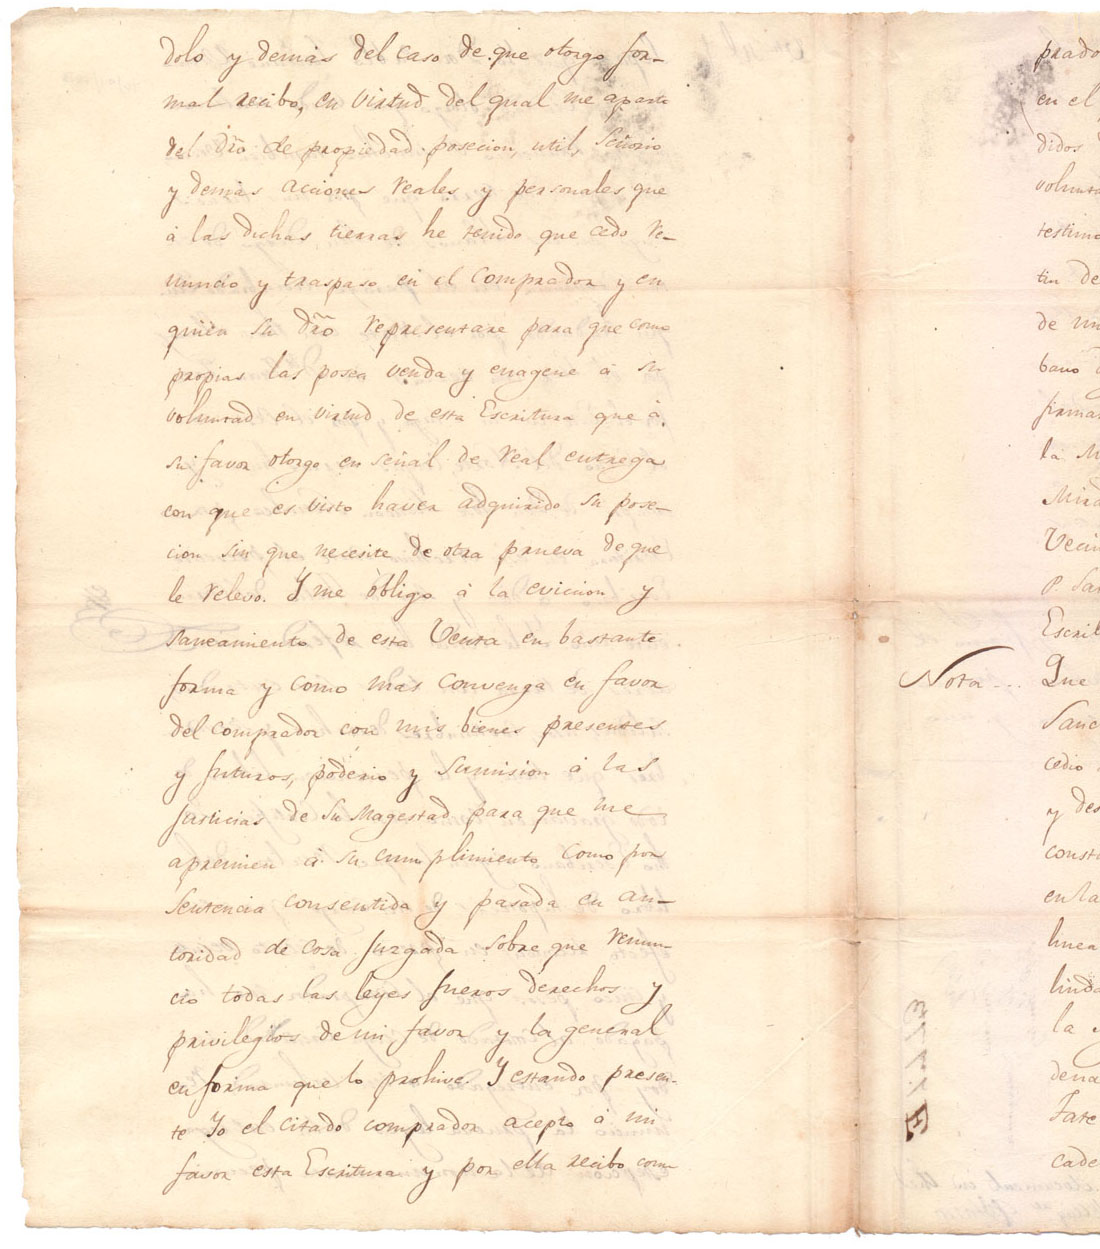 dolo y demas del caso de que otorgo for-
mal recibo, en virtud del qual me aparto
del dr̃o de propiedad posecion, util, Señorio
y demas acciones reales y personales que
á las dichas tierras he tenido que cedo re-
nuncio y traspaso en el comprador y en
quien su dr̃o representare para que como
propias las posea venda y enagene á su
voluntad en virtud de esta Escritura que á
su favor otorgo en señal de real entrega
con que es visto haver adquirido su pose-
cion sin que necesite de otra prueva de que
le relevo. Y me obligo á la eviccion y
saneamiento de esta Venta en bastante
forma y como mas convenga en favor
del comprador con mis bienes presentes
y futuros, poderio y sumision á las
Justicias de Su Magestad para que me
apremien á su cumplimiento como por
Sentencia consentida y pasada en au-
toridad de cosa Juzgada sobre que renun-
cio todas las leyes fueros derechos y
privilegios de mi favor y la general
en forma que lo prohive. Y estando presen-
te Yo el citado comprador acepto á mi
favor esta Escritura y por ella recibo com-
prado
en el
didos
volunta
testimo
tin de
de mi
bano
firma
la M
Mira
Veci
P. San
Escrib
Nota... Que
Sanc
cedio
y des
consti
en la
linea
linda
la
dena
Fate
cade